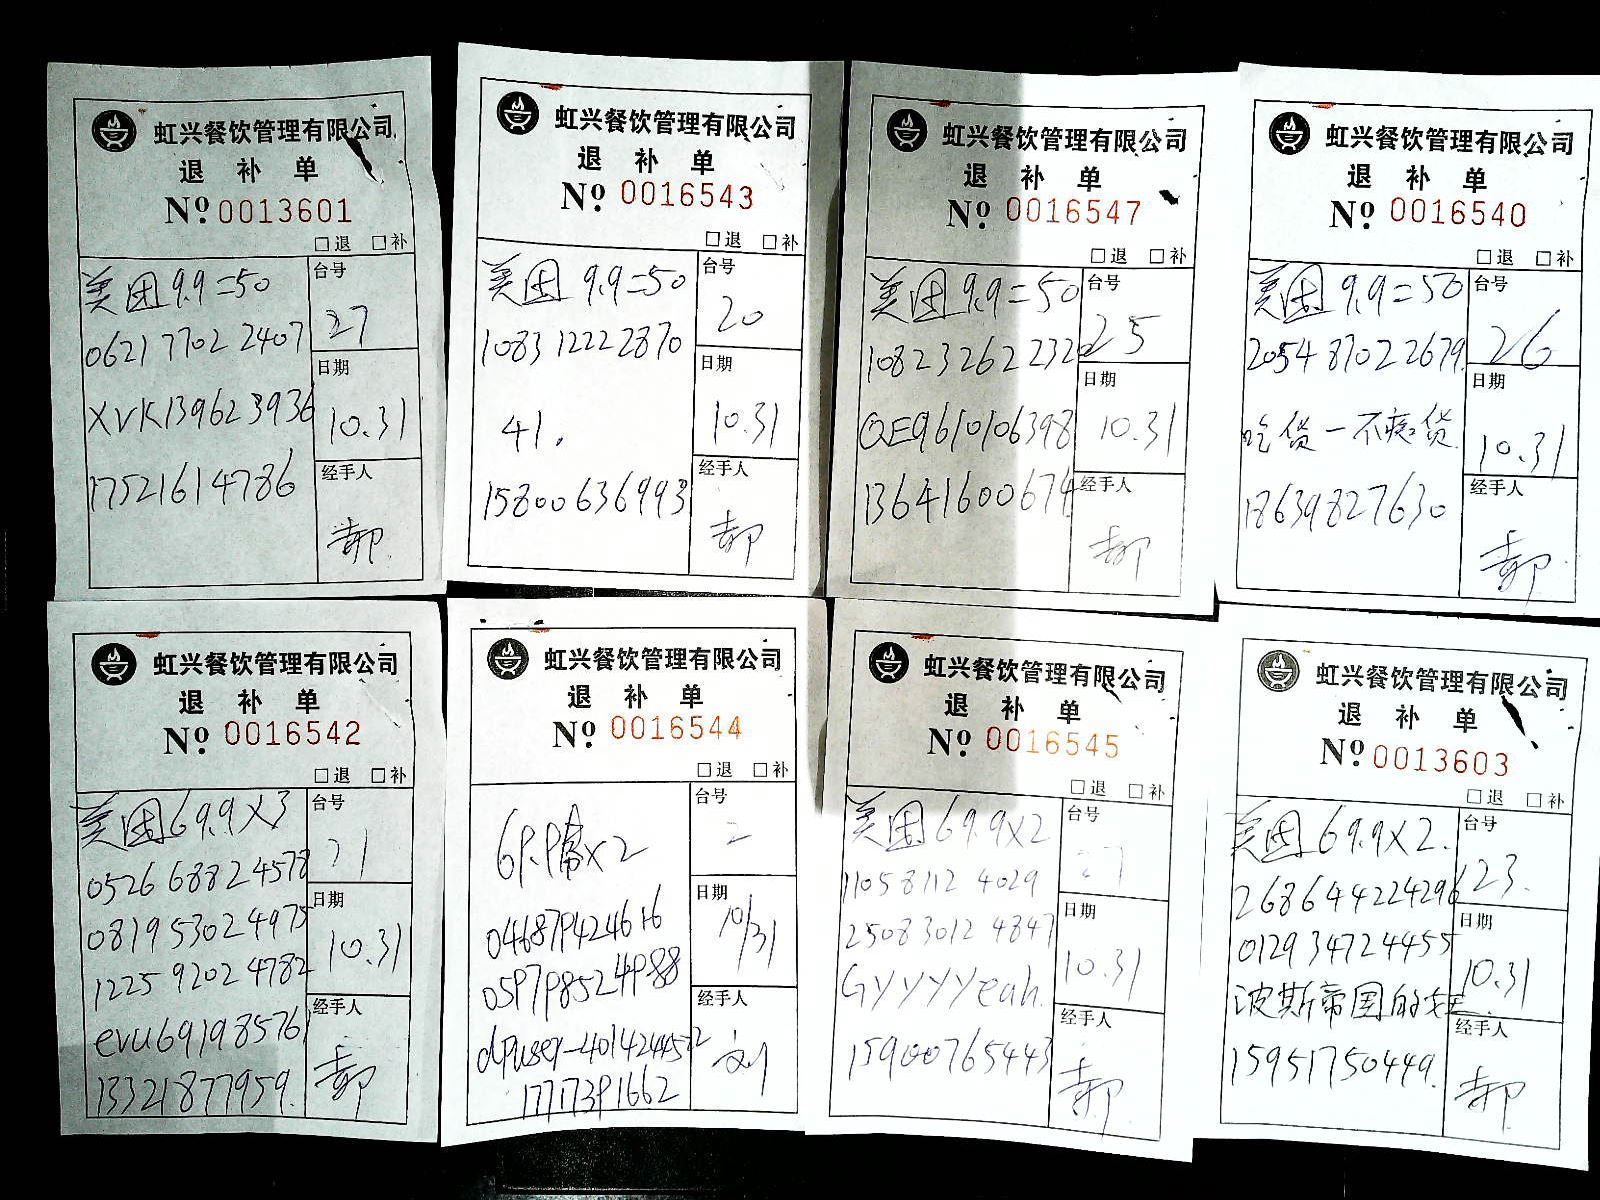 虹兴餐饮管理有限公司
退 补 单
Nº 0013601
□退 □补
美团 9.9=50
0621 7702 2407
XVK139623936
17521614786
台号
27
日期
10.31
经手人
郝
虹兴餐饮管理有限公司
退 补 单
Nº 0016543
□退 □补
美团 9.9=50
1083 1222 2870
41.
15800636993
台号
20
日期
10.31
经手人
郝
虹兴餐饮管理有限公司
退 补 单
Nº 0016547
□退 □补
美团 9.9=50
1082 3262 2320
QE9610106398
13641600674
台号
25
日期
10.31
经手人
郝
虹兴餐饮管理有限公司
退 补 单
Nº 0016540
□退 □补
美团 9.9=50
2054 8702 2679
吃货一不痴货
18639827630
台号
26
日期
10.31
经手人
郝
虹兴餐饮管理有限公司
退 补 单
Nº 0016542
□退 □补
美团 69.9X3
0526 6882 4578
0819 5302 4975
1225 9202 4782
evu691985761
13321877959.
台号
21
日期
10.31
经手人
郝
虹兴餐饮管理有限公司
退 补 单
Nº 0016544
□退 □补
69.9常X2
046879424616
059798524988
dpuser-40142445
17717391662
台号
2
日期
10/31
经手人
刘
虹兴餐饮管理有限公司
退 补 单
Nº 0016545
□退 □补
美团 69.9X2
11058112 4029
25083012 4847
GYYYYeah.
15900765443
台号
27
日期
10.31
经手人
郝
虹兴餐饮管理有限公司
退 补 单
Nº 0013603
□退 □补
美团 69.9X2.
268644224296
0129 34724455
波斯帝国的女王
15951750449.
台号
23.
日期
10.31
经手人
郝